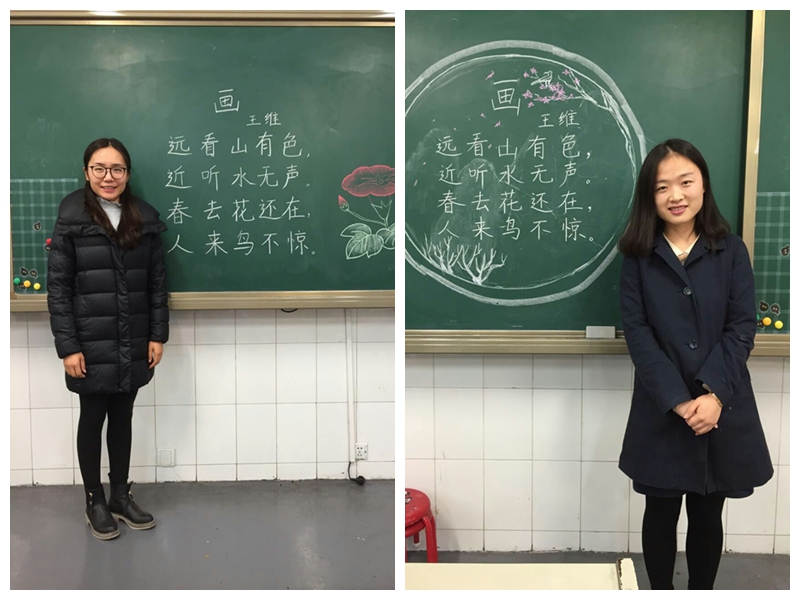 画
王维
远看山有色，
近听水无声。
春去花还在，
人来鸟不惊。
画
王维
远看山有色，
近听水无声。
春去花还在，
人来鸟不惊。